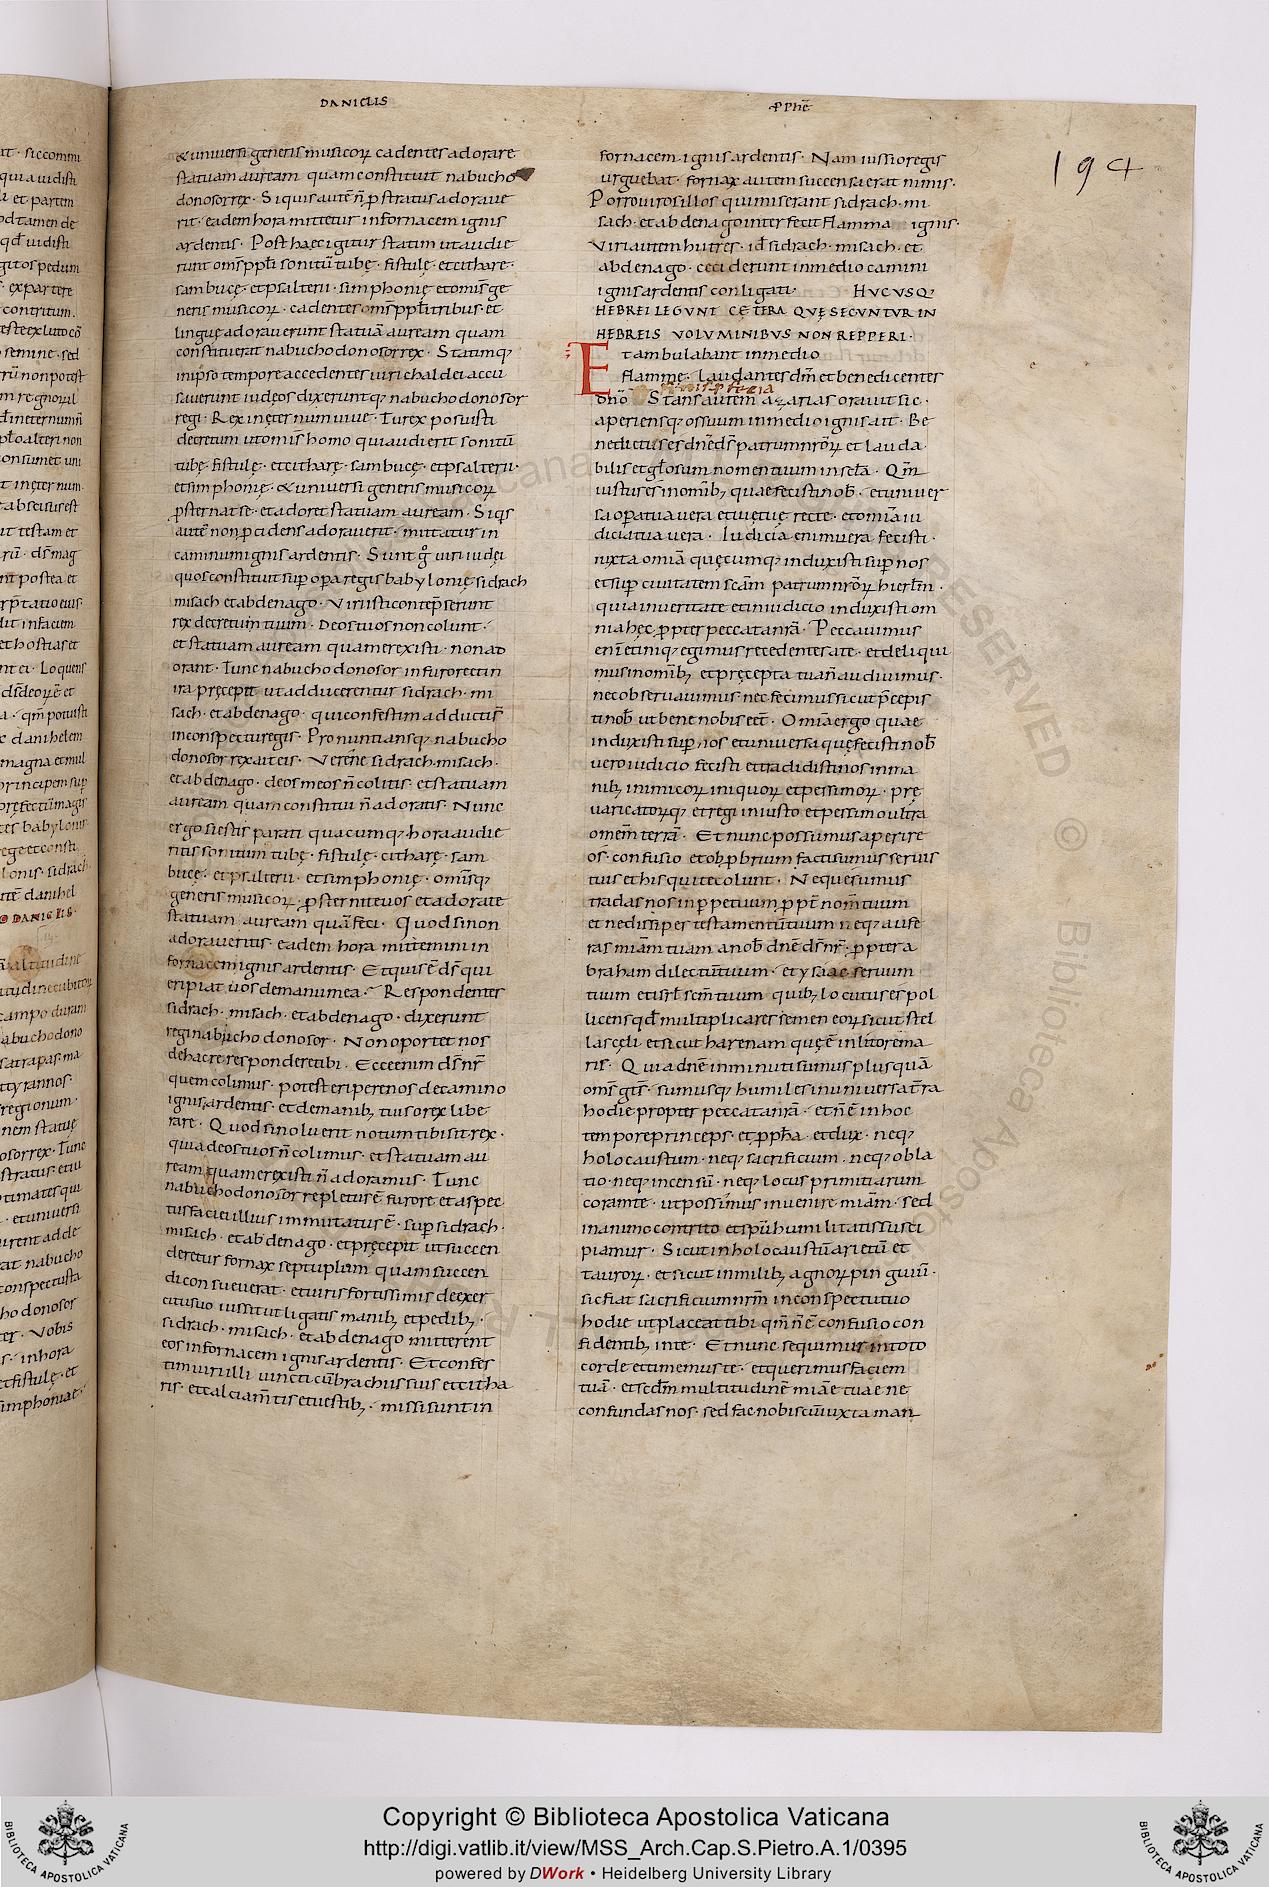 DANIELIS
PPHE
194
& universi generis musicorꝝ cadentes adorare
statuam auream quam constituit nabucho
donosor rex. Siquis autē n̄ p̄stratus adorave
rit. eadem hora mittetur in fornacem ignis
ardentis. Post haec igitur statim ut audie
runt om̄s ppl̄i sonitū tubę. fistulę. et citharę.
sambucę. et psalterii. simphonię et omis ge
neris musicorꝝ. cadentes om̄s ppl̄i tribus et
linguę adoraverunt statuā auream quam
constituerat nabuchodonosor rex. Statimq;
in ipso tempore accedentes viri chaldei accu
saverunt iudeos dixeruntq; nabuchodonosor
regi. Rex in ęternum vive. Tu rex posuisti
decretum ut omis homo qui audierit sonitū
tubę. fistulę. et citharę. sambucę. et psalterii.
et simphonię. & universi generis musicorꝝ
p̄sternat se. et adoret statuam auream. Siqs
autē non pcidens adoraverit. mittatur in
caminum ignis ardentis. Sunt g̊ viri iudęi
quos constituit sup opa regis babylonię sidrach
misach et abdenago. Viri isti contēpserunt
rex decretum tuum. Deos tuos non colunt.
et statuam auream quam erexisti. non ad
orant. Tunc nabuchodonosor in furore et in
ira pręcepit ut adducerentur sidrach. mi
sach. et abdenago. qui confestim adducti s̄
in conspectu regis. Pronuntiansq; nabucho
donosor rex ait eis. Verene sidrach. misach.
et abdenago. deos meos n̄ colitis. et statuam
auream quam constitui n̄ adoratis. Nunc
ergo si estis parati quacumq; hora audie
ritis sonitum tubę. fistulę. citharę. sam
bucę. et psalterii. et simphonię. omisq;
generis musicorꝝ. p̄sternite vos et adorate
statuam auream quā feci. Quod si non
adoraveritis. eadem hora mittemini in
fornacem ignis ardentis. Et quis ē ds̄ qui
eripiat vos de manu mea. Respondentes
sidrach. misach. et abdenago. dixerunt
regi nabuchodonosor. Non oportet nos
de hac re respondere tibi. Ecce enim ds̄ nr̄
quem colimus. potest eripere nos de camino
ignis ardentis. et de manib; tuis o rex libe
rare. Quod si noluerit notum tibi sit rex.
quia deos tuos n̄ colimus. et statuam au
ream quam erexisti n̄ adoramus. Tunc
nabuchodonosor repletus ē furore et aspec
tus faciei illius immutatus ē. sup sidrach.
misach. et abdenago. et pręcepit ut succen
deretur fornax septuplum quam succen
di consueverat. et viris fortissimis de exer
citu suo iussit ut ligatis manib; et pedib;.
sidrach. misach. et abdenago mitterent
eos in fornacem ignis ardentis. Et confes
tim viri illi vincti cū brachiis suis et citha
ris. et calciam̄tis et vestib;. missi sunt in
fornacem ignis ardentis. Nam iussio regis
urguebat. fornax autem succensa erat nimis.
Porro viros illos qui miserant sidrach. mi
sach. et abdenago interfecit flamma ignis.
Viri autem hi tres. id̄ sidrach. misach. et
abdenago. ceciderunt in medio camini
ignis ardentis conligati. HUCUSQ;
HEBREI LEGUNT CĘTERA QUĘ SECUNTUR IN
HEBREIS VOLUMINIBUS NON REPPERI.
Et ambulabant in medio
flammę. Laudantes dm̄ et benedicentes
dn̄o Stans autem azarias oravit sic.
aperiensq; os suum in medio ignis ait. Be
nedictus es dn̄e ds̄ patrum nr̄orꝝ et lauda
bilis et gl̄osum nomen tuum in scl̄a. Qm̄
iustus es in omīb; quae fecisti nob̄. et univer
sa opa tua vera et vię tuę recte. et omīa iu
dicia tua vera. Iudicia enim vera fecisti.
iuxta omīa quęcumq; induxisti sup nos
et sup civitatem sc̄am patrum nr̄orꝝ hierlm̄.
quia in veritate et in iudicio induxisti om
nia hęc ppter peccata nr̄a. Peccavimus
enī et iniq; egimus recedentes a te. et deliqui
mus in omīb; et pręcepta tua n̄ audivimus.
nec observavimus. nec fecimus sicut p̄cepis
ti nob̄ ut bene nobis eēt. Omīa ergo quae
induxisti sup nos et universa quę fecisti nob̄
vero iudicio fecisti et tradidisti nos in ma
nib; inimicorꝝ iniquorꝝ et pessimorꝝ. prę
varicatorꝝq; et regi iniusto et pessimo ultra
omem̄ terrā. Et nunc possumus aperire
os̄. confusio et obpbrium facti sumus servis
tuis et his qui te colunt. Ne quesumus
tradas nos in ppetuum ppt̄ nom̄ tuum
et ne dissipes testamentū tuum neq; aufe
ras mīam tuam a nob̄ dn̄e ds̄ nr̄. ppter a
braham dilectū tuum. et ysaac servum
tuum et isrl̄ scm̄ tuum quib; locutus es pol
licens qd̄ multiplicares semen eorꝝ sicut stel
las cęli et sicut harenam quę ē in litore ma
ris. Quia dn̄e inminuti sumus plus quā
om̄s gt̄s. sumusq; humiles in universa t̄ra
hodie propter peccata nr̄a. et n̄ ē in hoc
tempore princeps. et ppha. et dux. neq;
holocaustum. neq; sacrificium. neq; obla
tio. neq; incensū. neq; locus primitiarum
coram te. ut possimus invenire mīam. sed
in animo contrito et spū humilitatis susci
piamur. Sicut in holocaustū arietū et
taurorꝝ. et sicut in milib; agnorꝝ pinguiū.
sic fiat sacrificium nr̄m in conspectu tuo
hodie ut placeat tibi qm̄ n̄ ē confusio con
fidentib; in te. Et nunc sequimur in toto
corde et timemus te. et querimus faciem
tuā. et scdm̄ multitudinē mīae tuae ne
confundas nos. sed fac nobiscū iuxta man
Copyright © Biblioteca Apostolica Vaticana
http://digi.vatlib.it/view/MSS_Arch.Cap.S.Pietro.A.1/0395
powered by DWork • Heidelberg University Library
BIBLIOTECA APOSTOLICA VATICANA
BIBLIOTECA APOSTOLICA VATICANA